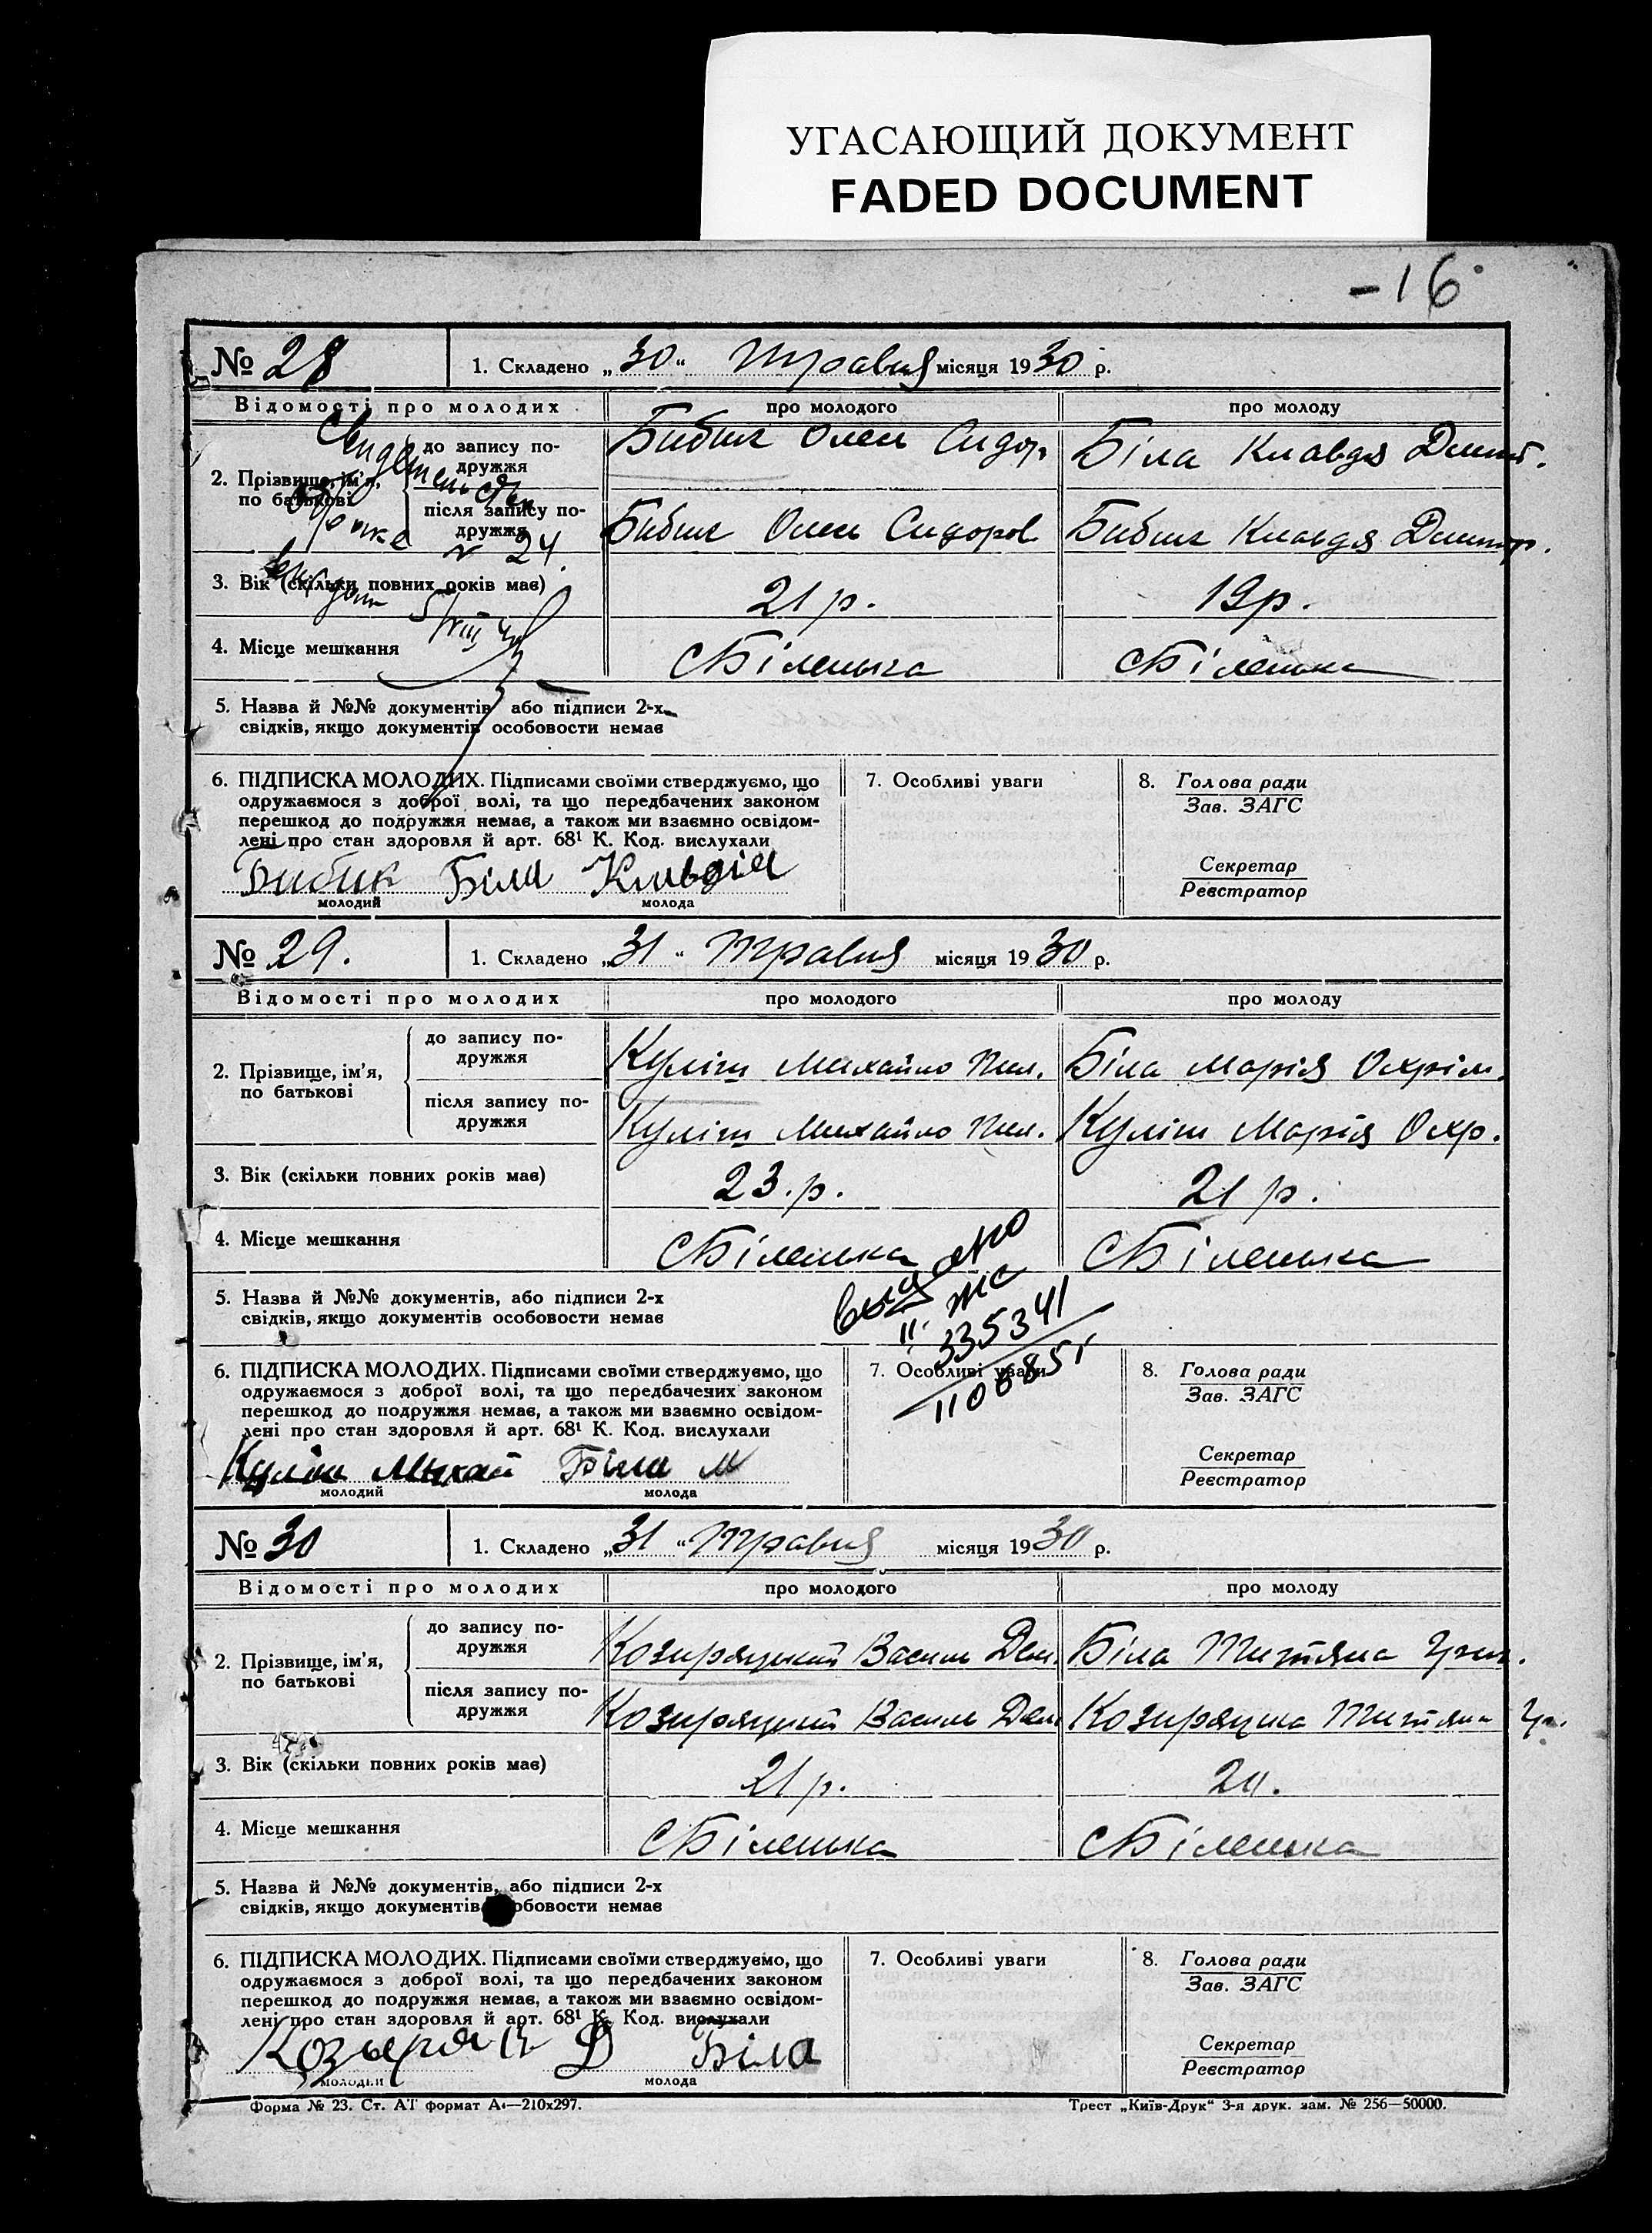 УГАСАЮЩИЙ ДОКУМЕНТ
FADED DOCUMENT
-16
№ 28
1. Складено „30“ Травня місяця 1930 р.
Відомості про молодих
про молодого
про молоду
2. Прізвище, ім’я, по батькові
до запису подружжя
Бибик Олек Сидор.
Біла Клавдя Дмит.
після запису подружжя
Бибик Олек Сидоров
Бибик Клавдя Дмитр.
№ 24.
3. Вік (скільки повних років має)
21 р.
19 р.
4. Місце мешкання
с Біленька
с Біленька
5. Назва й №№ документів або підписи 2-х
свідків, якщо документів особовости немає
6. ПІДПИСКА МОЛОДИХ. Підписами своїми стверджуємо, що
одружаємося з доброї волі, та що передбачених законом
перешкод до подружжя немає, а також ми взаємно освідом-
лені про стан здоровля й арт. 68¹ К. Код. вислухали
Бибик Біла Клавдія
молодий
молода
7. Особливі уваги
8. Голова ради
Зав. ЗАГС
Секретар
Реєстратор
№ 29.
1. Складено „31“ Травня місяця 1930 р.
Відомості про молодих
про молодого
про молоду
2. Прізвище, ім’я, по батькові
до запису подружжя
Куліш Михайло Пил.
Біла Марія Охрім.
після запису подружжя
Куліш Михайло Пил.
Куліш Марія Охр.
3. Вік (скільки повних років має)
23. р.
21 р.
4. Місце мешкання
с Біленька
с Біленька
5. Назва й №№ документів, або підписи 2-х
свідків, якщо документів особовости немає
335341
6. ПІДПИСКА МОЛОДИХ. Підписами своїми стверджуємо, що
одружаємося з доброї волі, та що передбачених законом
перешкод до подружжя немає, а також ми взаємно освідом-
лені про стан здоровля й арт. 68¹ К. Код. вислухали
Куліш Михай Біла М
молодий
молода
7. Особливі уваги
8. Голова ради
Зав. ЗАГС
Секретар
Реєстратор
№ 30
1. Складено „31“ Травня місяця 1930 р.
Відомості про молодих
про молодого
про молоду
2. Прізвище, ім’я, по батькові
до запису подружжя
Козиряцкий Василь Дем.
Біла Титяна Григ.
після запису подружжя
Козиряцкий Василь Дем.
Козиряцка Титяна Гр.
3. Вік (скільки повних років має)
21 р.
4. Місце мешкання
с Біленька
с Біленька
5. Назва й №№ документів, або підписи 2-х
свідків, якщо документів особовости немає
6. ПІДПИСКА МОЛОДИХ. Підписами своїми стверджуємо, що
одружаємося з доброї волі, та що передбачених законом
перешкод до подружжя немає, а також ми взаємно освідом-
лені про стан здоровля й арт. 68¹ К. Код. вислухали
Д Біла
молодий
молода
7. Особливі уваги
8. Голова ради
Зав. ЗАГС
Секретар
Реєстратор
Форма № 23. Ст. АТ формат А4—210х297.
Трест „Київ-Друк“ 3-я друк. зам. № 256—50000.